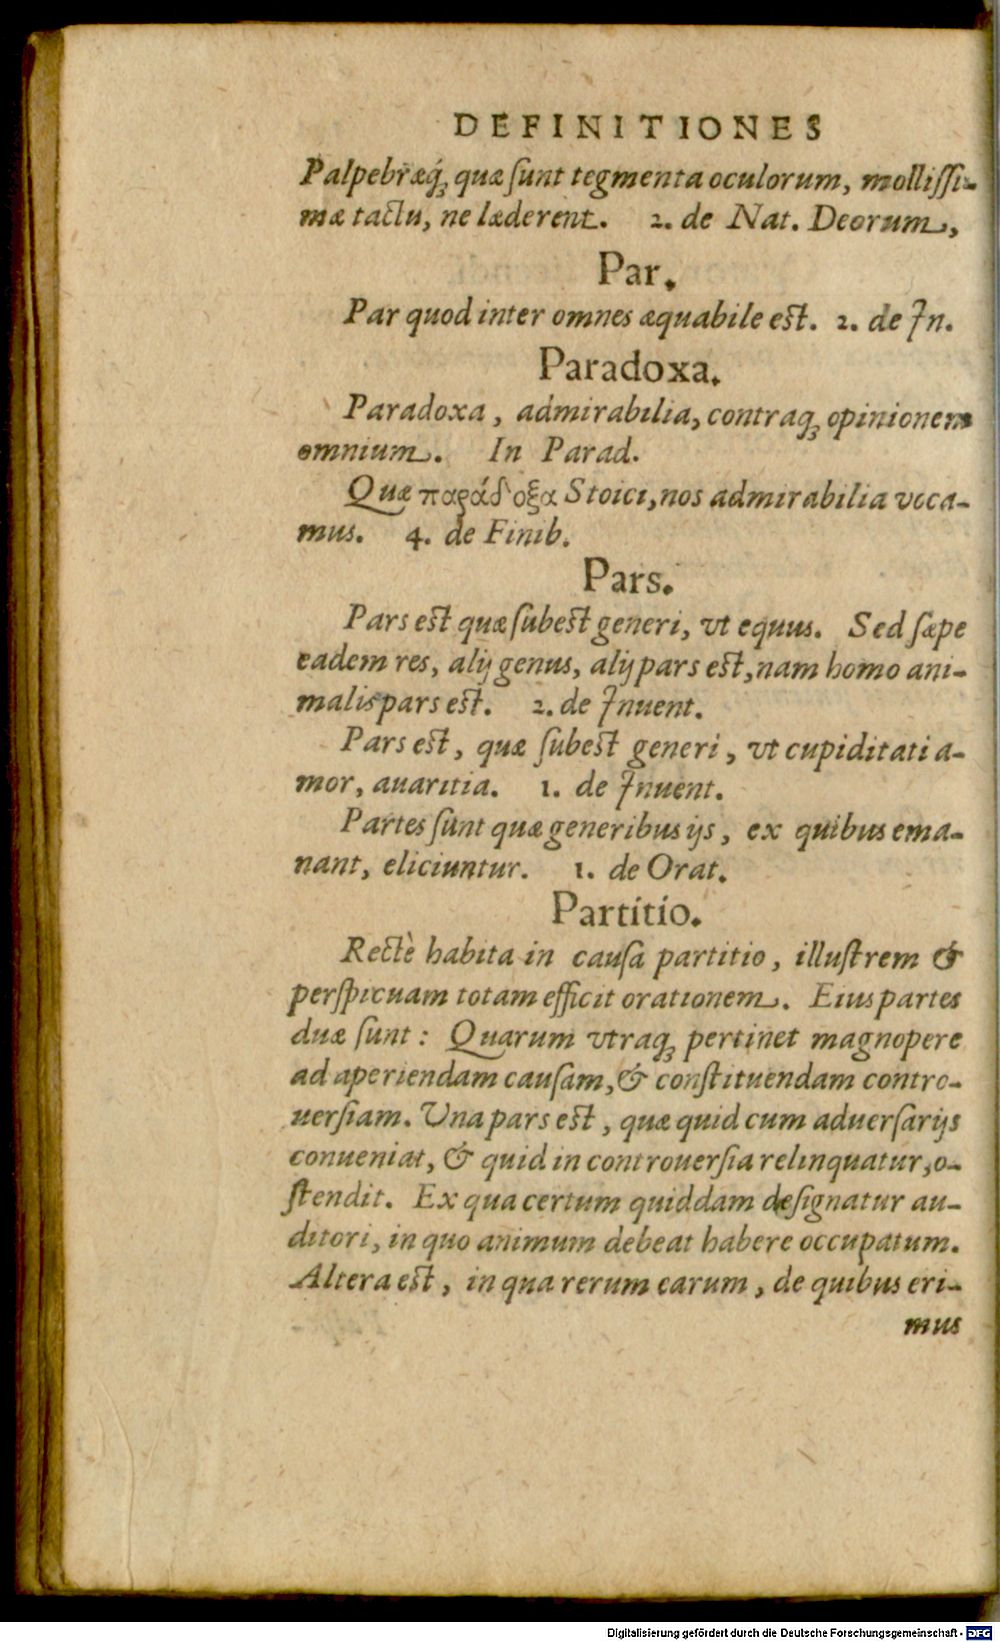 DEFINITIONES
Palpebræq́ꝫ quæ ſunt tegmenta oculorum, molliſſi-
mæ tactu, ne læderent. 2. de Nat. Deorum,
Par.
Par quod inter omnes æquabile est. 2. de In.
Paradoxa.
Paradoxa, admirabilia, contraqꝫ opinionem
omnium. In Parad.
Quæ παράδοξα Stoici, nos admirabilia voca-
mus. 4. de Finib.
Pars.
Pars est quæ ſubest generi, vt equus. Sed ſæpe
eadem res, alij genus, alij pars est, nam homo ani-
malis pars est. 2. de Inuent.
Pars est, quæ ſubest generi, vt cupiditati a-
mor, auaritia. 1. de Inuent.
Partes ſunt quæ generibus ijs, ex quibus ema-
nant, eliciuntur. 1. de Orat.
Partitio.
Rectè habita in cauſa partitio, illuſtrem &
perſpicuam totam efficit orationem. Eius partes
duæ ſunt: Quarum vtraqꝫ pertinet magnopere
ad aperiendam cauſam, & conſtituendam contro-
uerſiam. Vna pars est, quæ quid cum aduerſarijs
conueniat, & quid in controuerſia relinquatur, o-
ſtendit. Ex qua certum quiddam deſignatur au-
ditori, in quo animum debeat habere occupatum.
Altera est, in qua rerum earum, de quibus eri-
mus
Digitalisierung gefördert durch die Deutsche Forschungsgemeinschaft - DFG